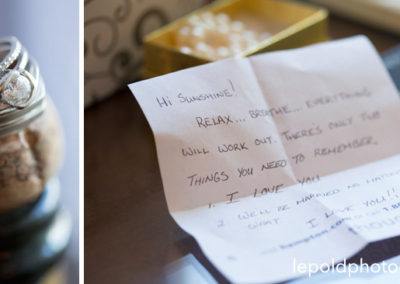 Hi Sunshine!
RELAX... BREATHE... EVERYTHING
WILL WORK OUT. THERE'S ONLY TWO
THINGS YOU NEED TO REMEMBER.
1. I LOVE YOU
2. WE'LL BE MARRIED NO MATTER
WHAT.
I LOVE YOU!!
hampton.com
lepoldphoto